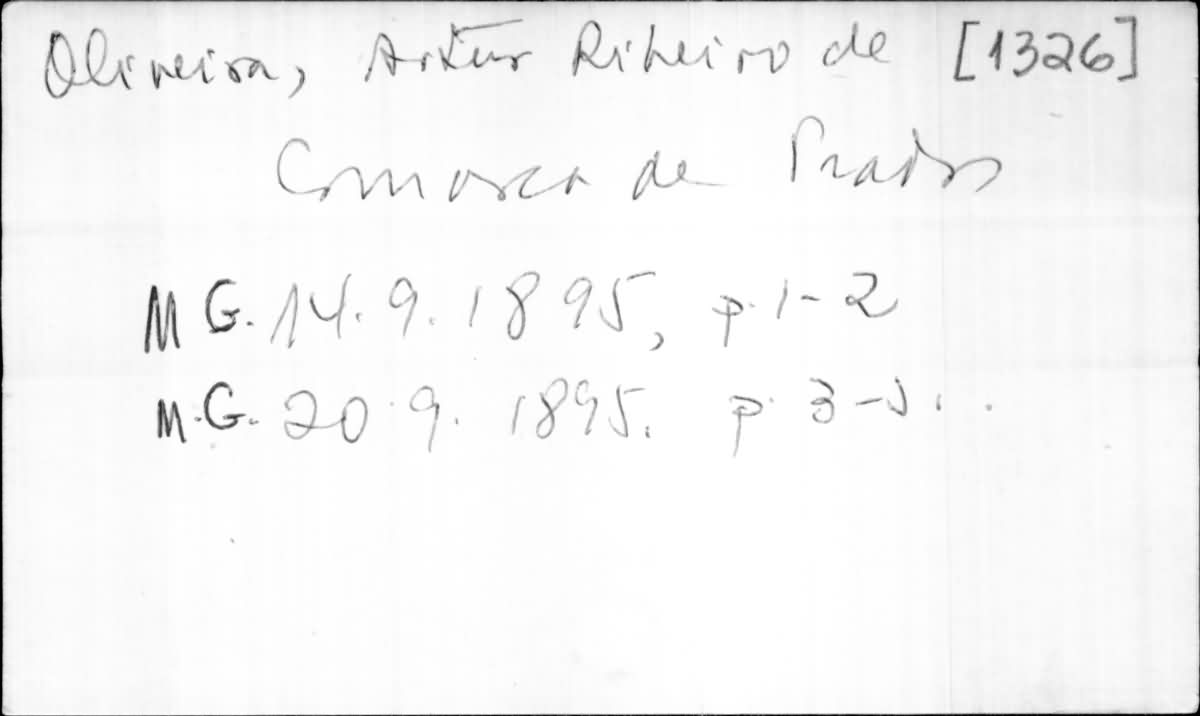 Oliveira, Artur Ribeiro de [1326]
Comarca de Prados
M G. 14. 9. 1895, p. 1-2
M. G. 20 9. 1895. p. 3-